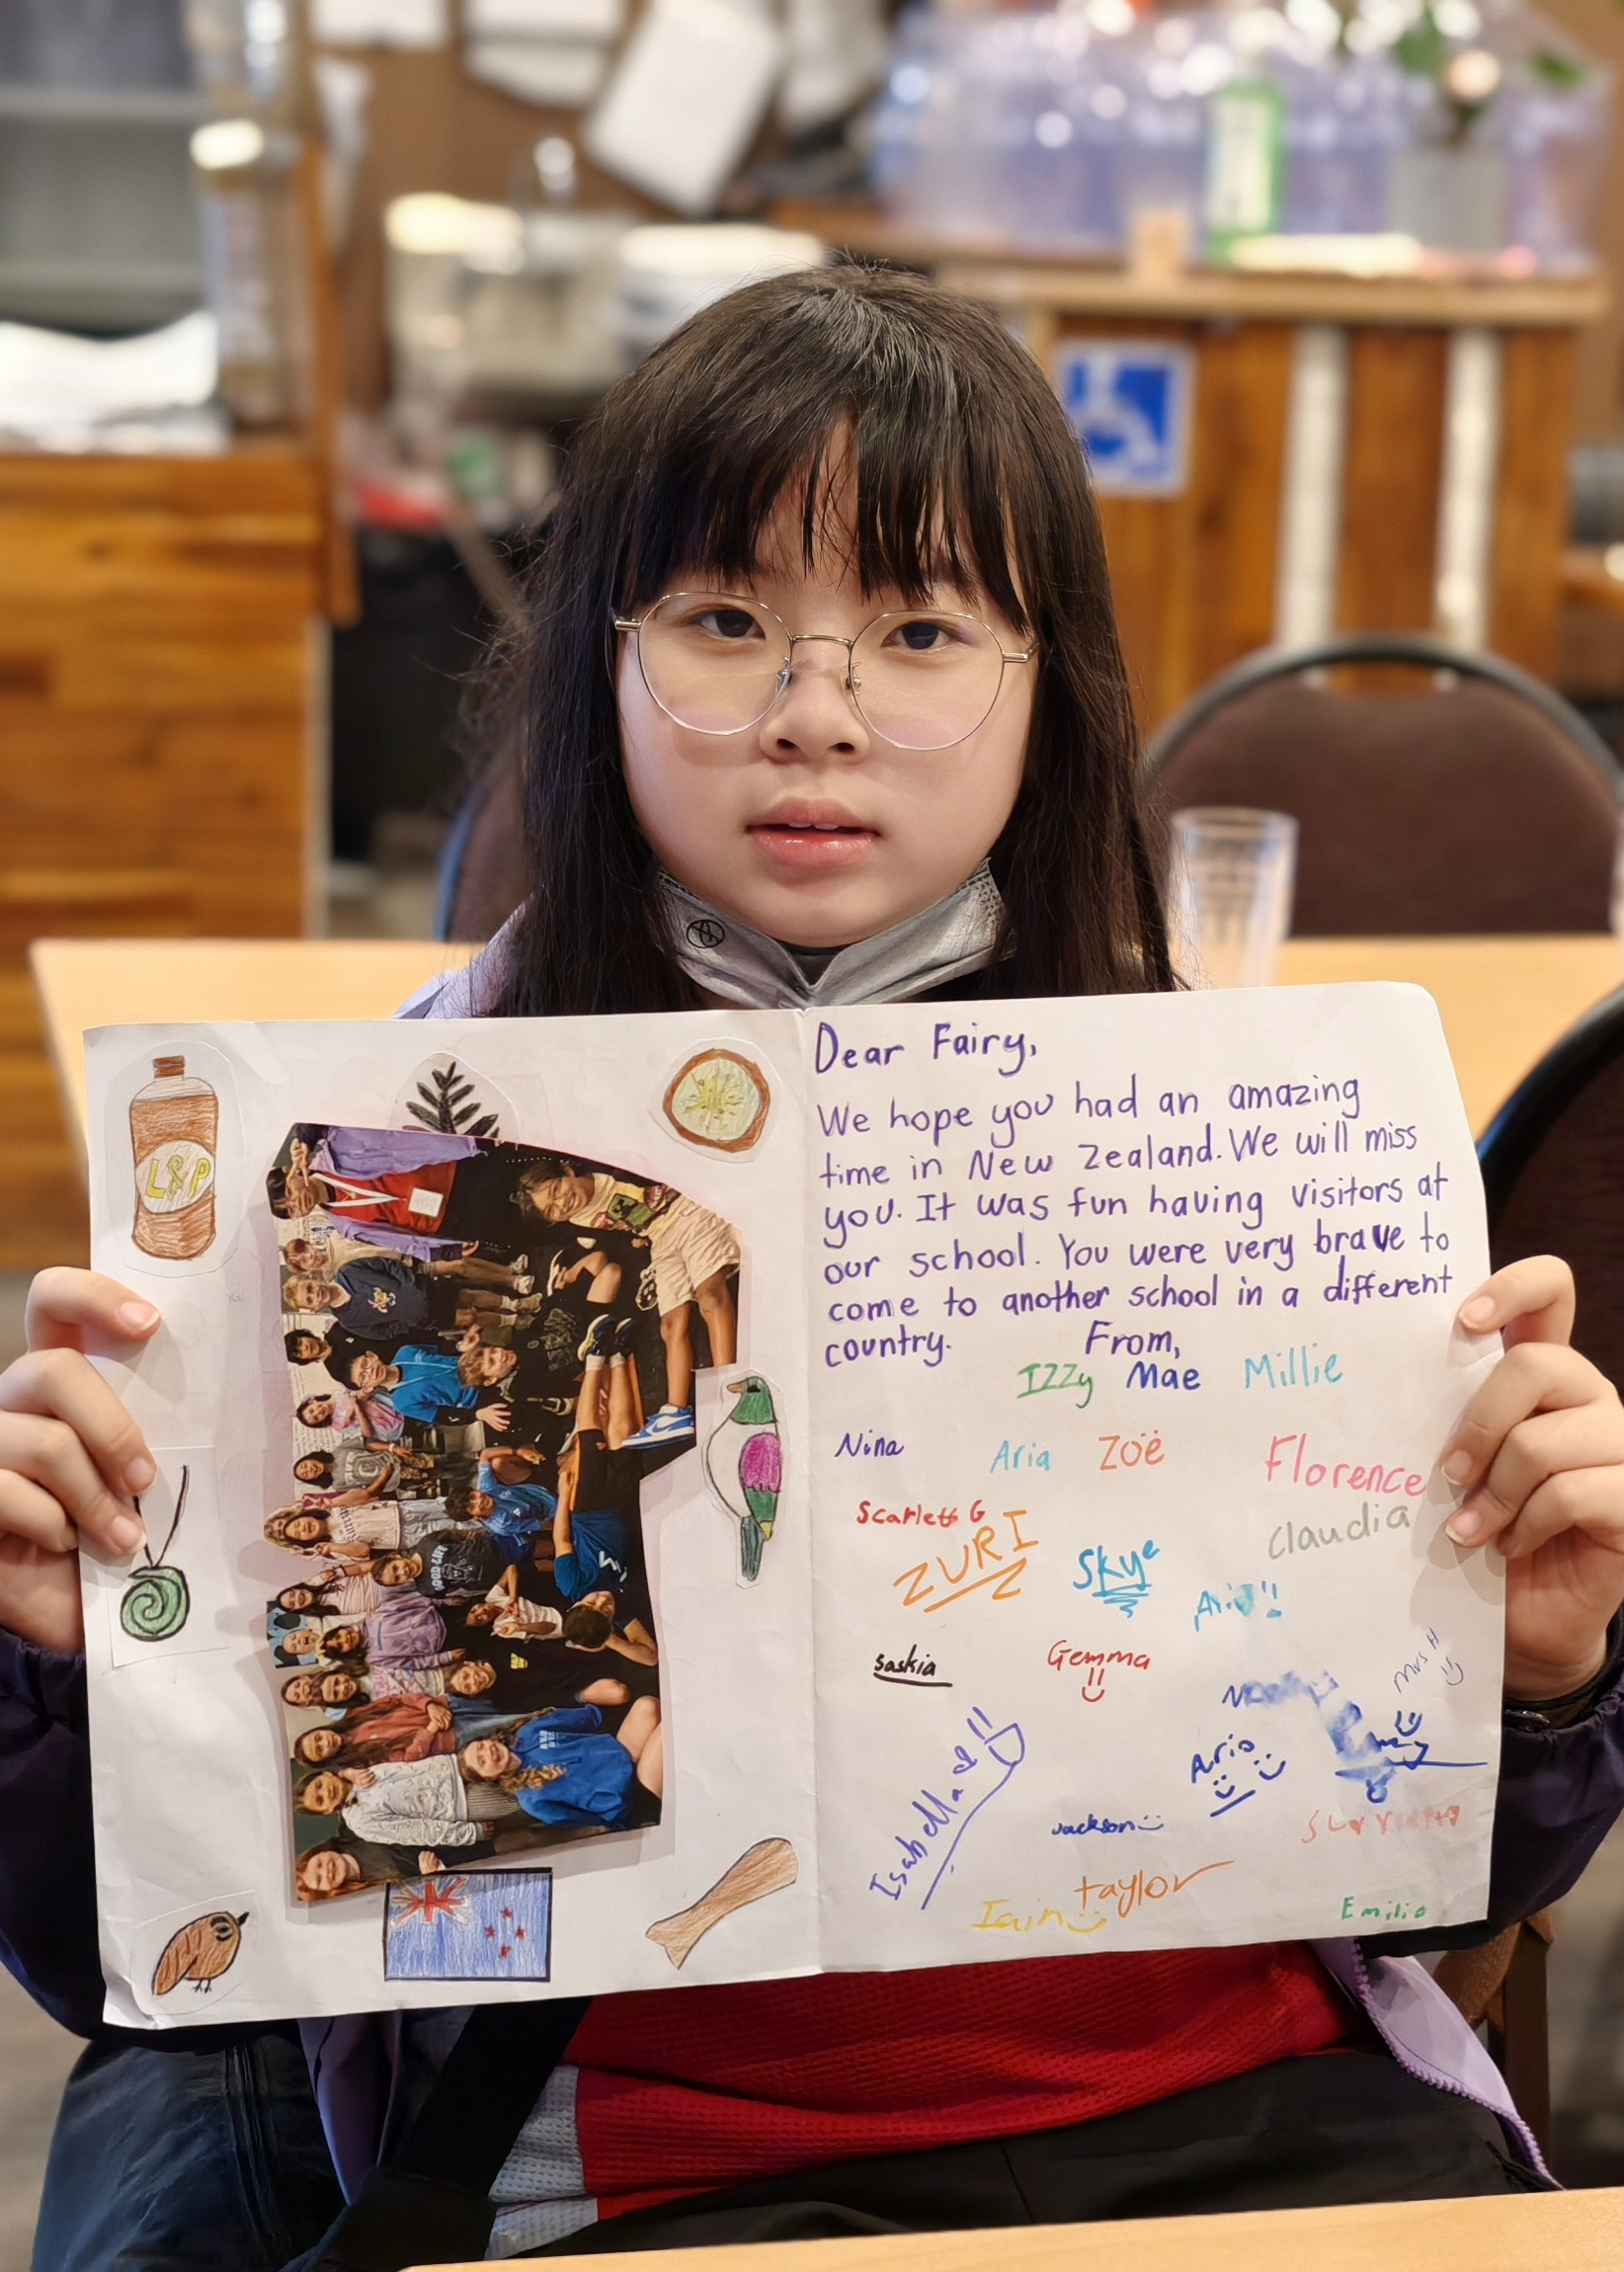 L&P
Dear Fairy,
We hope you had an amazing
time in New Zealand. We will miss
you. It was fun having visitors at
our school. You were very brave to
come to another school in a different
country. From,
Izzy Mae Millie
Nina Aria Zoë Florence
Scarlett G Claudia
ZURI Skye
Saskia Gemma
Mrs H
Isabella
Jackson
taylor
Iain Emilio